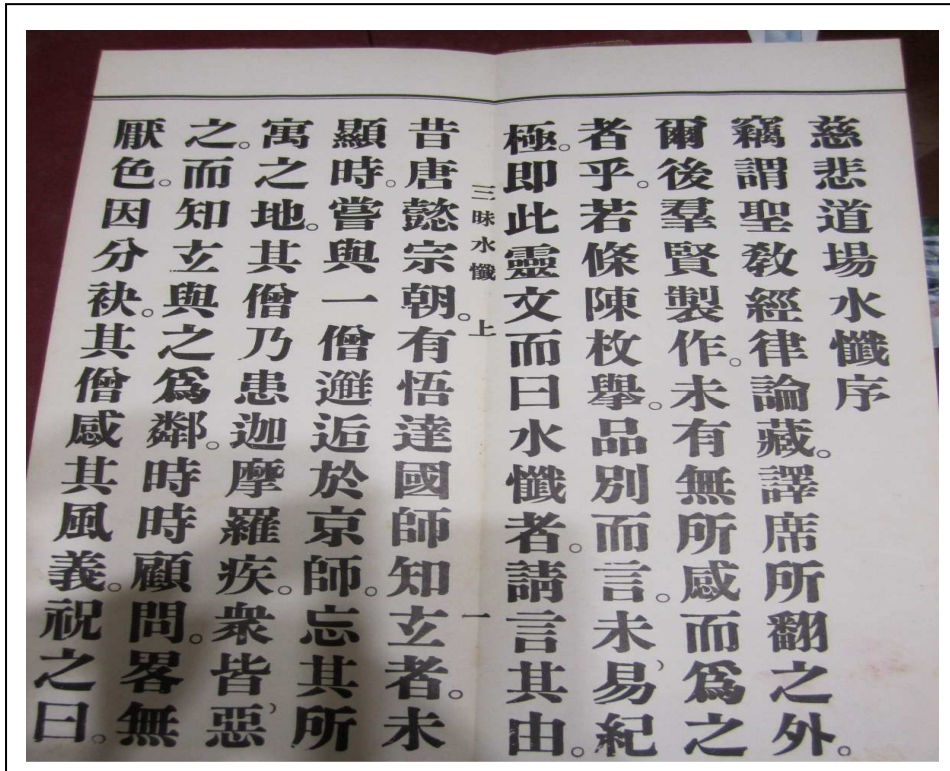 慈悲道場水懺序
竊謂聖敎經律論藏。譯席所翻之外。
爾後羣賢製作。未有無所感而爲之
者乎。若條陳枚擧。品別而言。未易、紀
極。即此靈文而曰水懺者。請言其由。
三昧水懺 上 一
昔唐懿宗朝。有悟達國師知玄者。未
顯時。嘗與一僧邂逅於京師。忘其所
寓之地。其僧乃患迦摩羅疾。衆皆惡、
之。而知玄與之爲鄰。時時顧問。畧無
厭色。因分袂。其僧感其風義。祝之曰。